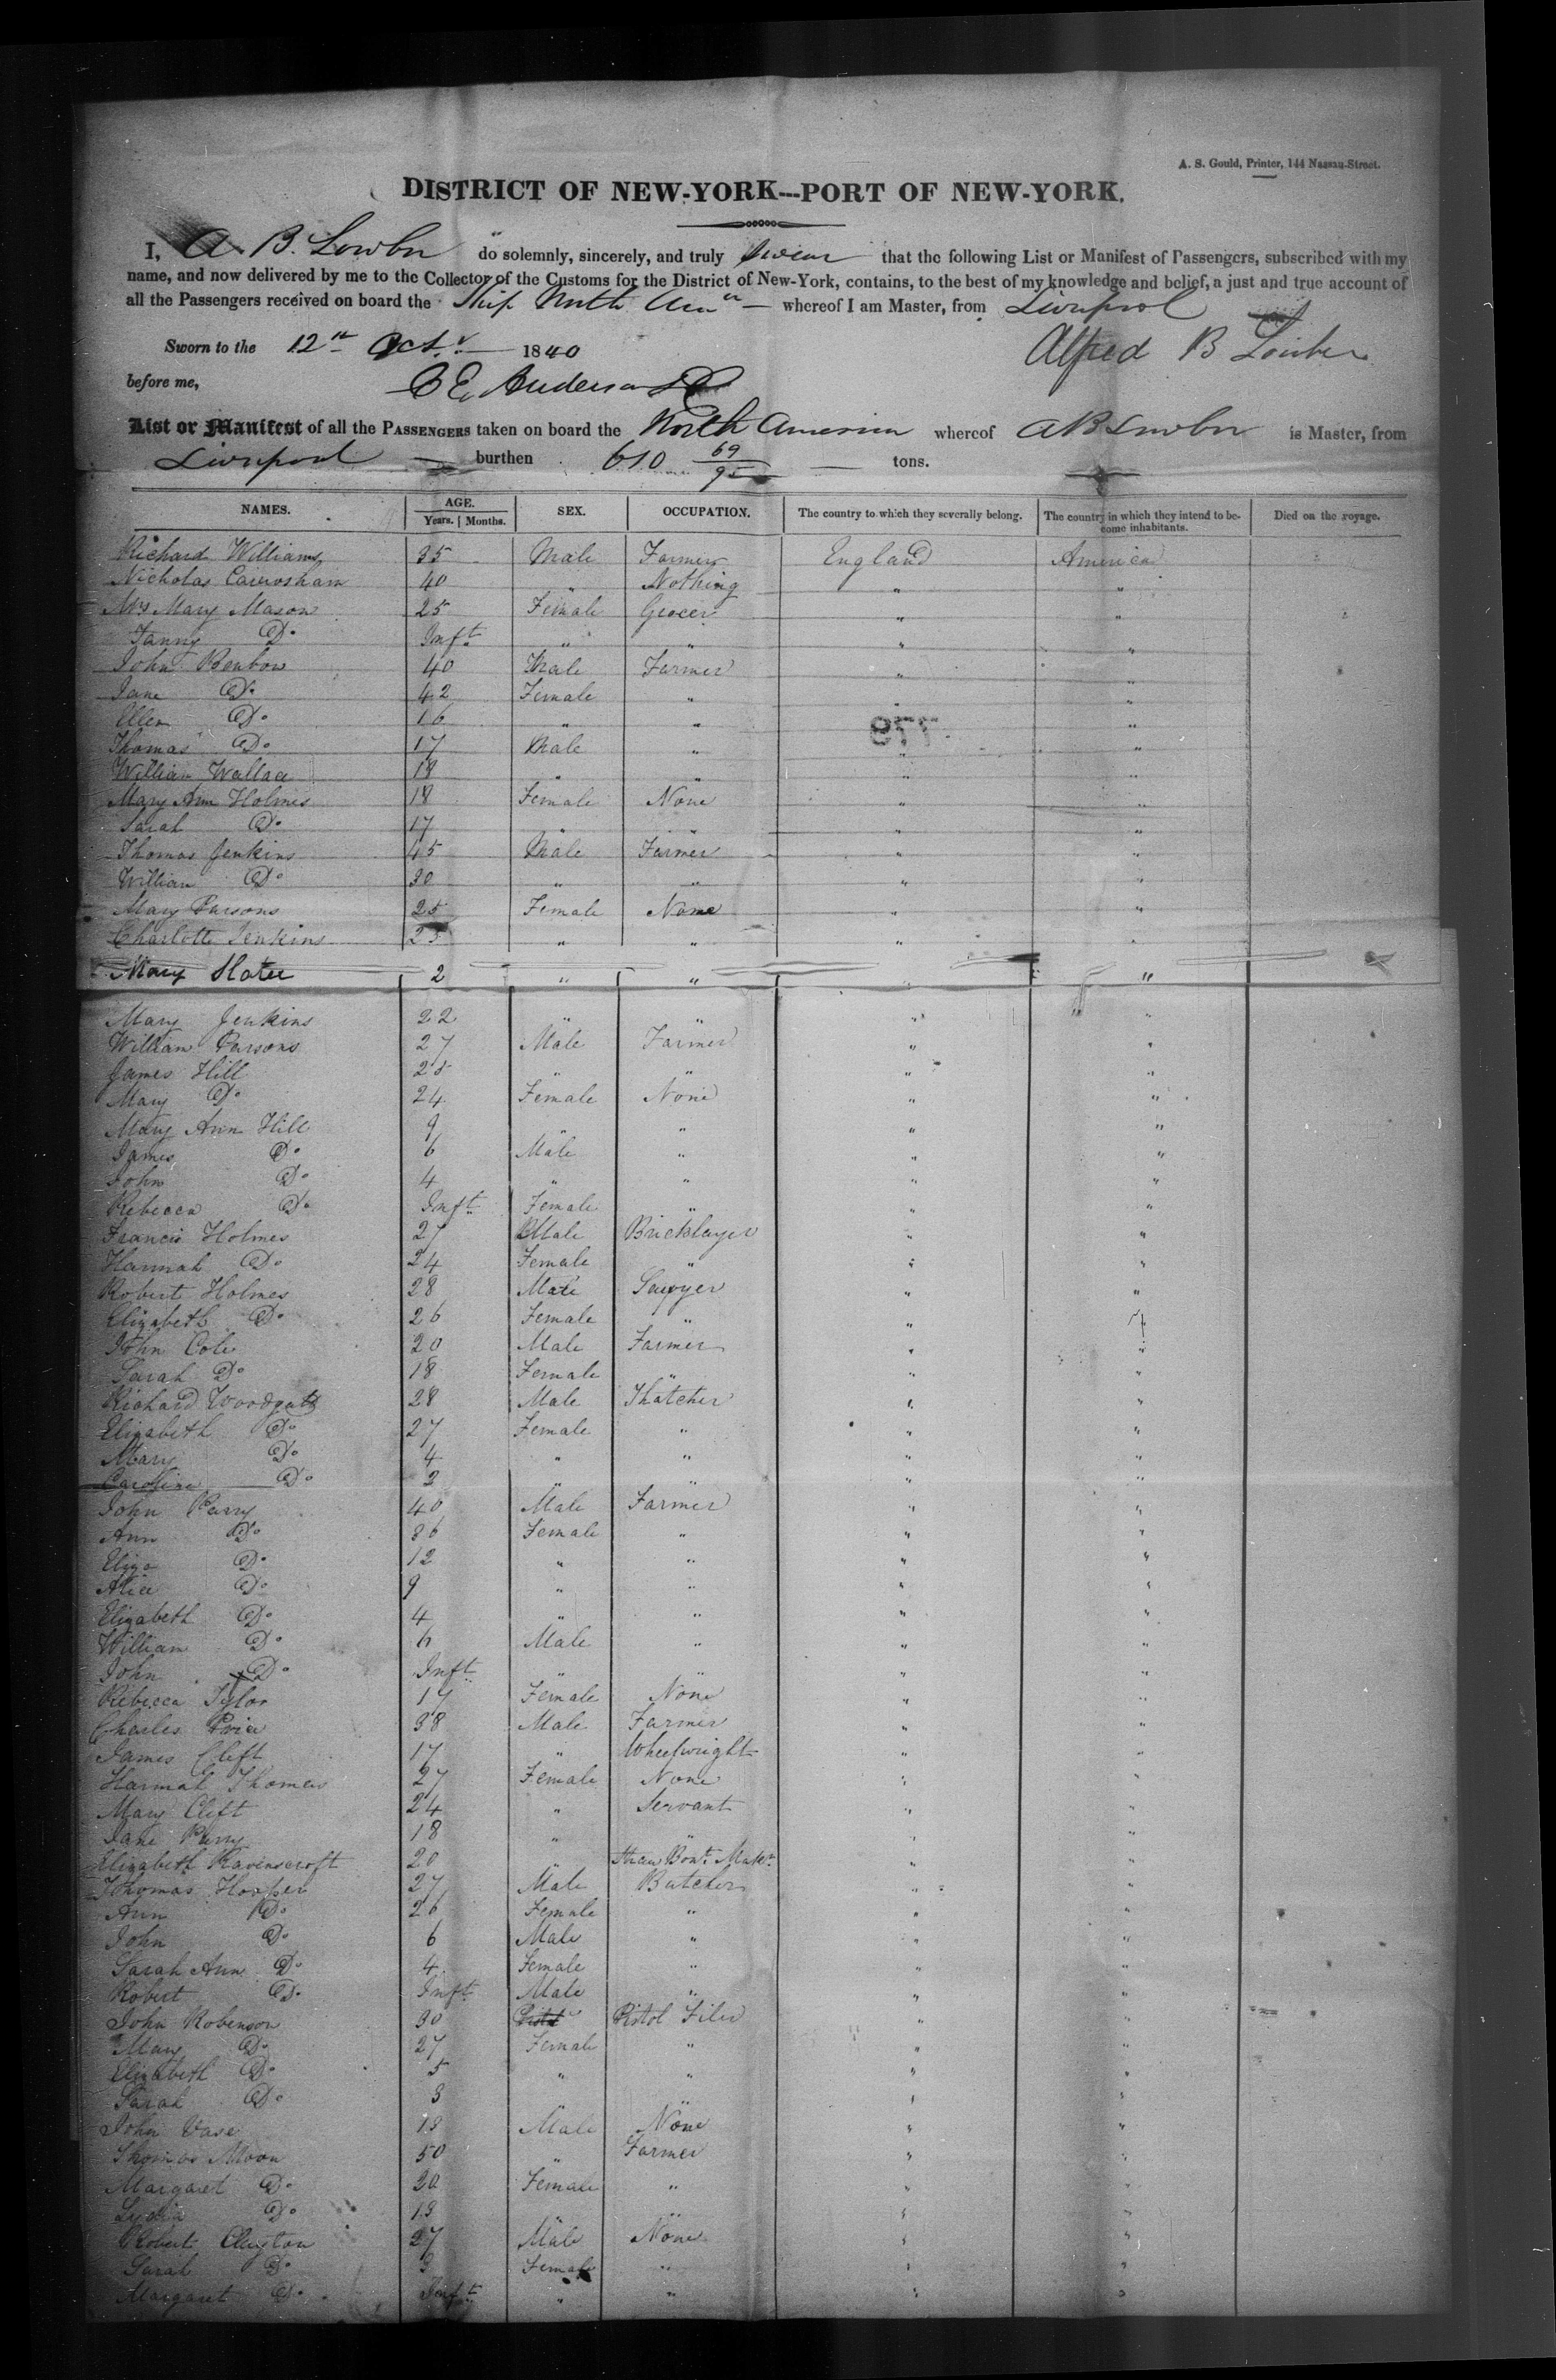 A. S. Gould, Printer, 144 Nassau-Street.
DISTRICT OF NEW-YORK---PORT OF NEW-YORK.
I, A. B. Lowber do solemnly, sincerely, and truly swear that the following List or Manifest of Passengers, subscribed with my
name, and now delivered by me to the Collector of the Customs for the District of New-York, contains, to the best of my knowledge and belief, a just and true account of
all the Passengers received on board the Ship North whereof I am Master, from Liverpool
Sworn to the 12th Octr. 1840 Alfred B Lowber
before me, Anderson
List or Manifest of all the PASSENGERS taken on board the North America whereof A B Lowber is Master, from
Liverpool burthen 610 69/95 tons.
NAMES. AGE. SEX. OCCUPATION. The country to which they severally belong. The country in which they intend to be- Died on the voyage.
Years. Months. come inhabitants.
Richard Williams 35 Male Farmer England America
Nicholas 40 " Nothing " "
Mrs Mary Mason 25 Female Grocer " "
Fanny Do Inft " " " "
John Benbow 40 Male Farmer " "
Jane Do 42 Female " " "
Ellen Do 16 " " " "
877
Thomas Do 17 Male " " "
William Wallace 18 " " " "
Mary Ann Holmes 18 Female None " "
Sarah Do 17 " " " "
Thomas Jenkins 45 Male Farmer " "
William Do 30 " " " "
Mary Parsons 25 Female None " "
Charlotte Jenkins 25 " " " "
Mary Slater 2 " " " "
Mary Jenkins 22 " " " "
William Parsons 27 Male Farmer " "
James Hill 25 " " " "
Mary Do 24 Female None " "
Mary Ann Hill 9 " " " "
James Do 6 Male " " "
John Do 4 " " " "
Rebecca Do Inft Female " " "
Francis Holmes 27 Male Bricklayer " "
Hannah Do 24 Female " " "
Robert Holmes 28 Male Sawyer " "
Elizabeth Do 26 Female " " "
John Cole 20 Male Farmer " "
Sarah Do 18 Female " " "
Richard Woodgate 28 Male Thatcher " "
Elizabeth Do 27 Female " " "
Mary Do 4 " " " "
Caroline Do 2 " " " "
John Parry 40 Male Farmer " "
Ann Do 36 Female " " "
Eliza Do 12 " " " "
Alice Do 9 " " " "
Elizabeth Do 4 " " " "
William Do 6 Male " " "
John Do Inft " " " "
Rebecca Tylor 17 Female None " "
Charles Price 38 Male Farmer " "
James Clift 17 " Wheelwright " "
Hannah Thomas 27 Female None " "
Mary Clift 24 " Servant " "
Jane Parry 18 " " " "
Elizabeth Ravenscroft 20 " Straw Bont. Makr. " "
Thomas Hooper 27 Male Butcher " "
Ann Do 26 Female " " "
John Do 6 Male " " "
Sarah Ann Do 4 Female " " "
Robert Do Inft Male " " "
John Robenson 30 Pistol Filer " "
Mary Do 27 Female " " "
Elizabeth Do 5 " " " "
Sarah Do 3 " " " "
John Vase 18 Male None " "
Thomas Moon 50 " Farmer " "
Margaret Do 20 Female " " "
Lydia Do 18 " " " "
Robert Clayton 27 Male None " "
Sarah Do 3 Female " " "
Margaret Do Inft " " " "